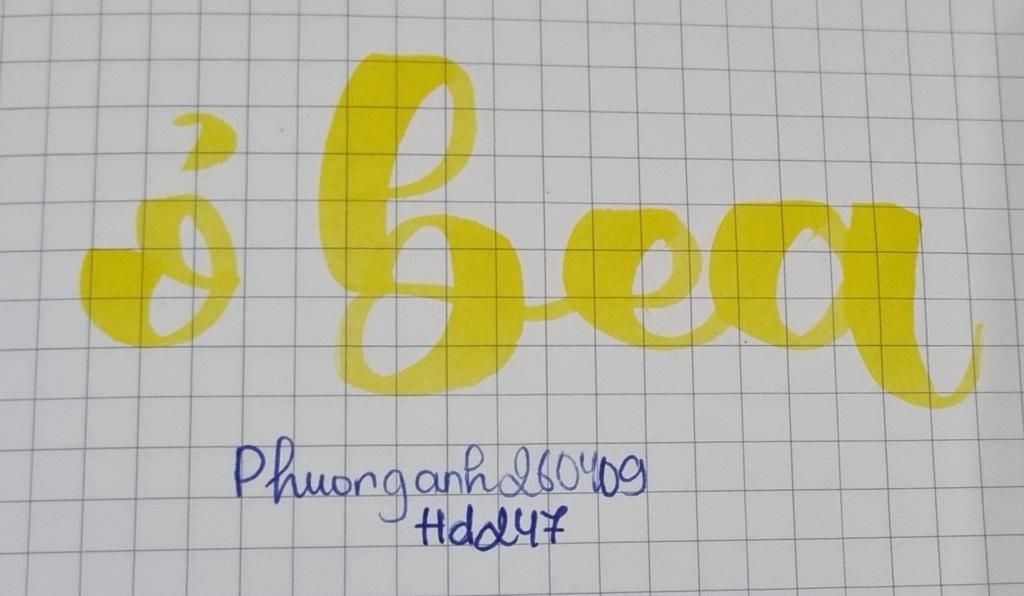 ỏ bea
Phuonganh260409
Hdd247